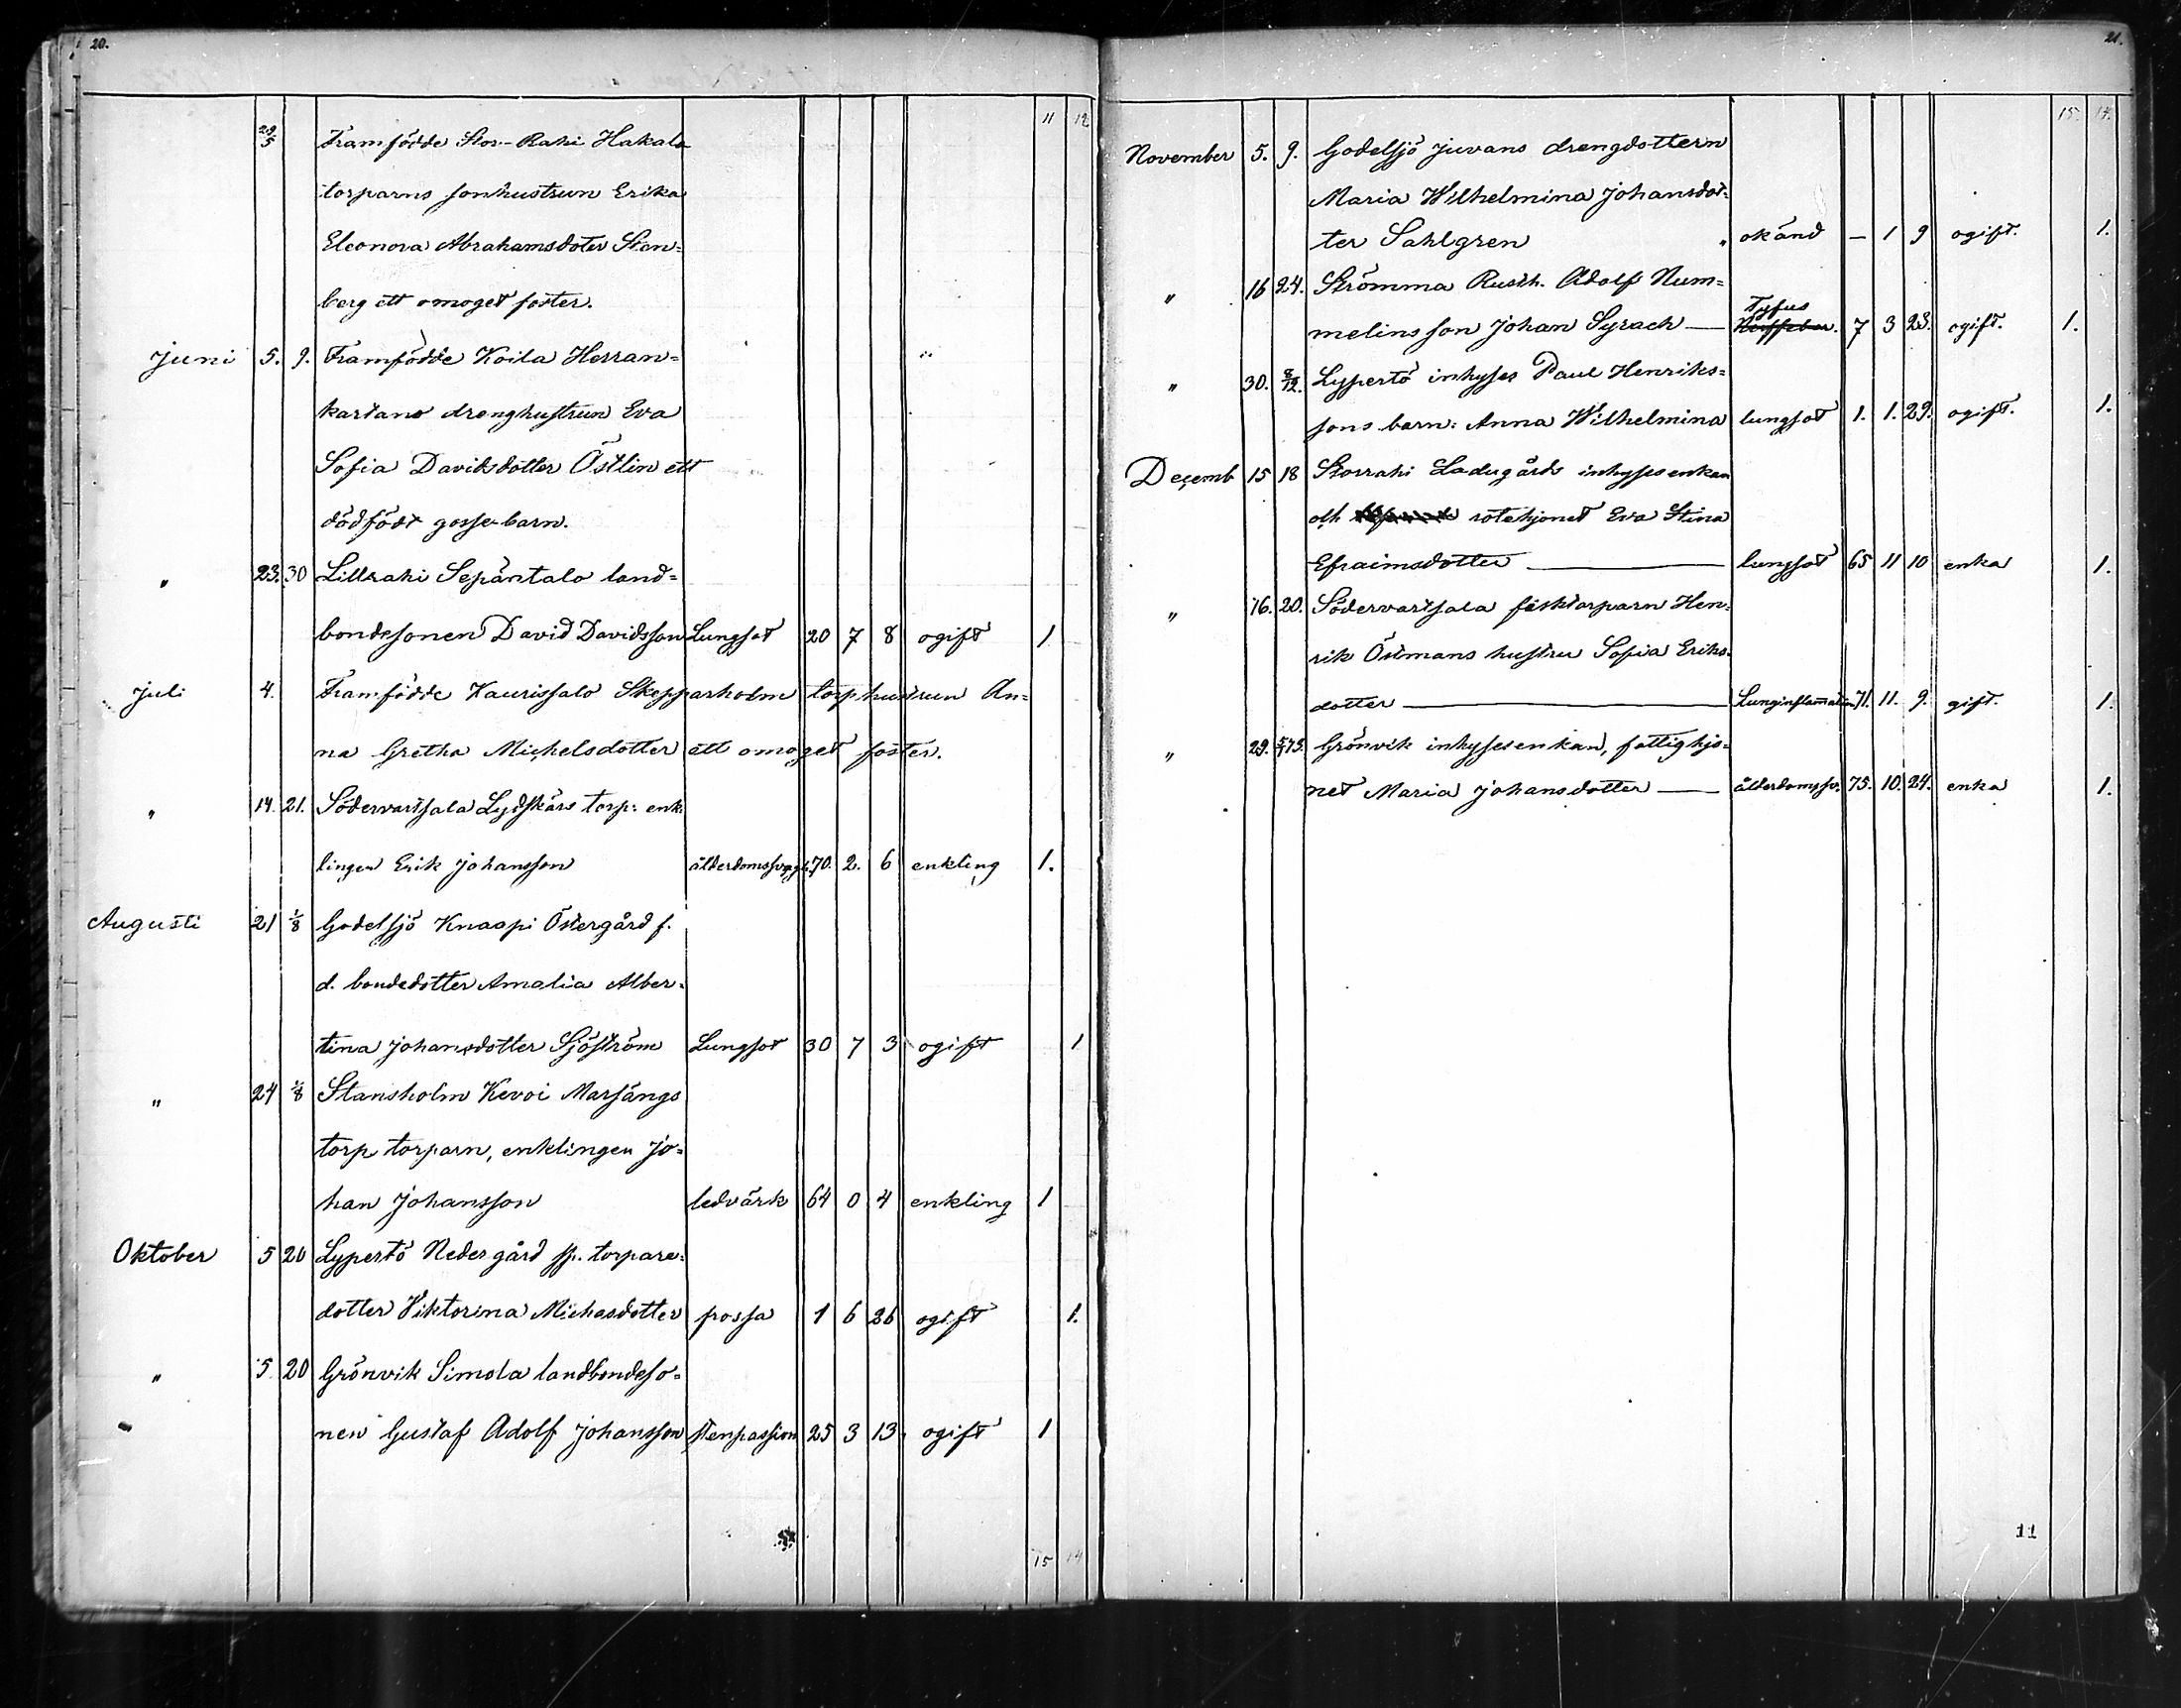 20.
11 12
29/5 Framfödde Stor-Rahi Hakala
torparns sonhustrun Erika
Eleonora Abrahamsdoter Sten-
berg ett omoget foster.
Juni 5. 9. Framfödde Koila Herran-
kartano drenghustrun Eva
Sofia Davidsdotter Östlin ett
dödfödt gosse-barn.
" 23. 30 Lillrahi Sepäntalo land-
bondesonen David Davidsson Lungsot 20 7 8 ogift 1
Juli 4. Framfödde Kaurissalo Skepparholm torphustrun An-
na Gretha Michelsdotter ett omoget foster.
" 14. 21. Södervartsala Lydskärs torp: enk-
lingen Erik Johansson ålderdomssvagh. 70. 2. 6 enkling 1.
Augusti 21 1/8 Godelsjö Knaapi Östergård f.
d. bondedotter Amalia Alber-
tina Johansdotter Sjöström Lungsot 30 7 3 ogift 1
" 24 1/8 Stansholm Kevoi Marsängs
torp torparn, enklingen Jo-
han Johansson ledvärk 64 0 4 enkling 1
Oktober 5 20 Lypertö Nedergård sp. torpare-
dotter Viktorina Michasdotter possa 1 6 26 ogift 1.
" 5 20 Grönvik Simola landbondeso-
nen Gustaf Adolf Johansson stenpassion 25 3 13 ogift 1
15 14
21.
15. 14.
November 5. 9. Godelsjö Juvans drengdottern
Maria Wilhelmina Johansdot-
ter Sahlgren okänd — 1 9 ogift. 1.
" 16 24. Strömma Rusth. Adolf Num-
Tyfus
melins son Johan Syrach — 7 3 23. ogift. 1.
" 30. 8/12. Lypertö inhyses Paul Henriks-
sons barn: Anna Wilhelmina lungsot 1. 1. 29. ogift. 1.
Decemb 15 18 Storrahi Ladugårds inhysesenkan
och rotehjonet Eva Stina
Efraimsdotter — lungsot 65 11 10 enka 1.
" 16. 20. Södervartsala fisktorparn Hen-
rik Östmans hustru Sofia Eriks-
dotter — Lunginflamation 71. 11. 9. gift. 1.
" 29. Grönvik inhysesenkan, fattighjo-
net Maria Johansdotter — ålderdomssv. 75. 10. 24. enka 1.
11